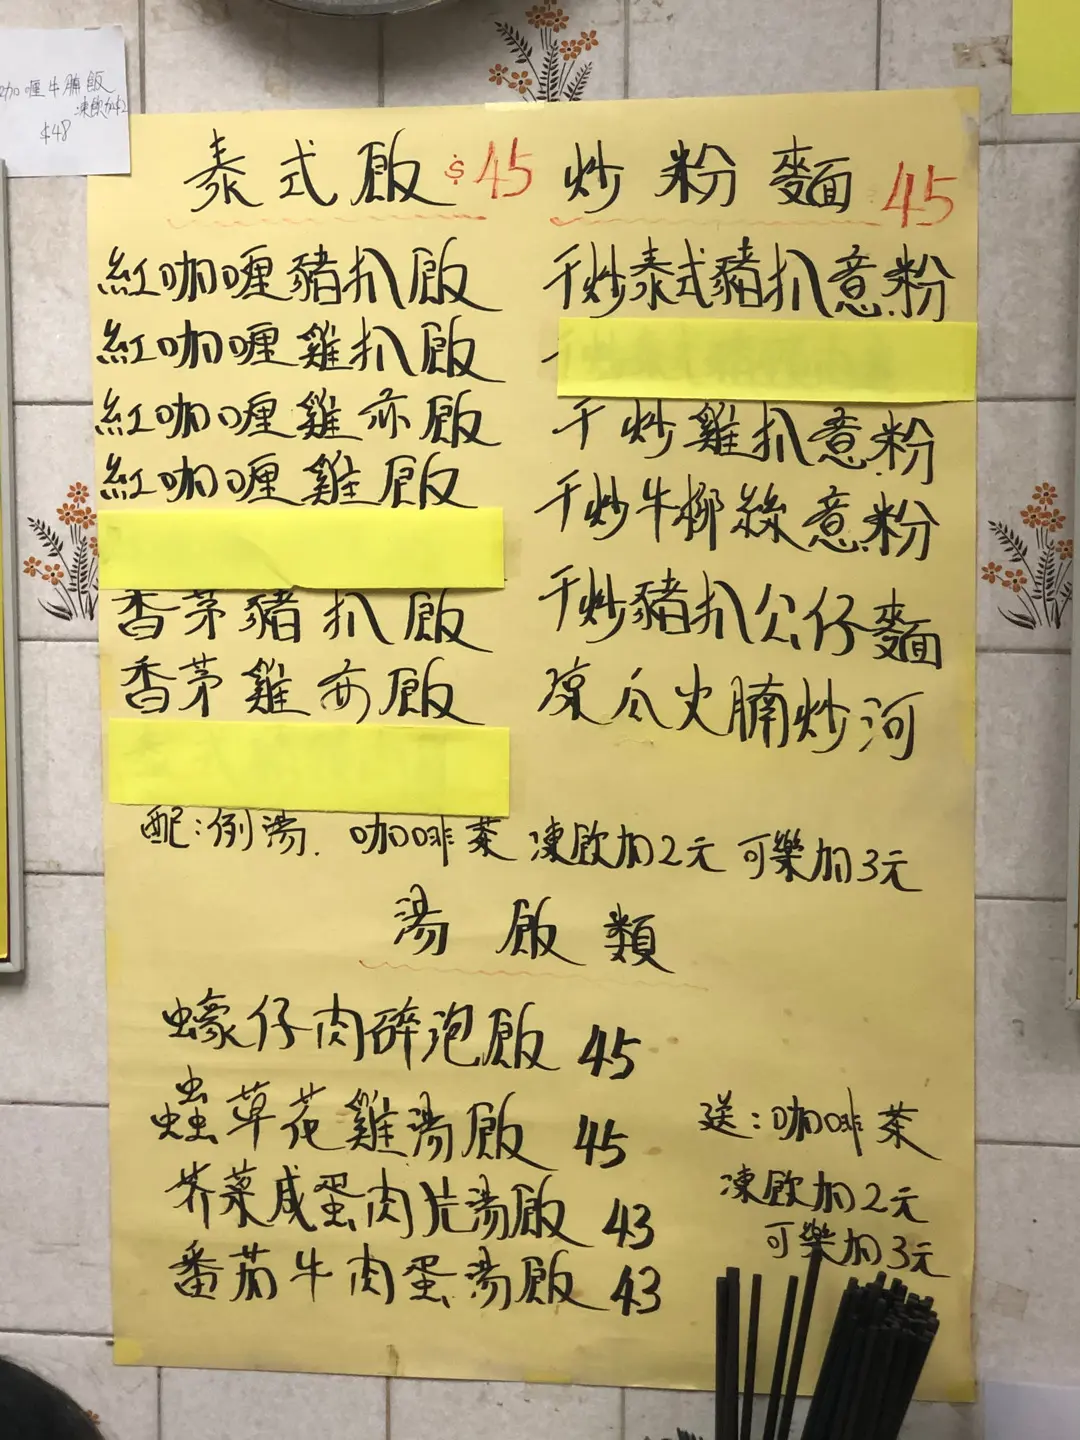 咖喱牛腩飯
凍飲加$2
$48
泰式飯 $45
紅咖喱豬扒飯
紅咖喱雞扒飯
紅咖喱雞亦飯
紅咖喱雞飯
香茅豬扒飯
香茅雞亦飯
炒粉麵 45
干炒泰式豬扒意粉
干炒雞扒意粉
干炒牛柳絲意粉
干炒豬扒公仔麵
凉瓜火腩炒河
配:例湯. 咖啡茶 凍飲加2元 可樂加3元
湯飯類
蠔仔肉碎泡飯 45
蟲草花雞湯飯 45
芥菜咸蛋肉片湯飯 43
番茄牛肉蛋湯飯 43
送:咖啡茶
凍飲加2元
可樂加3元